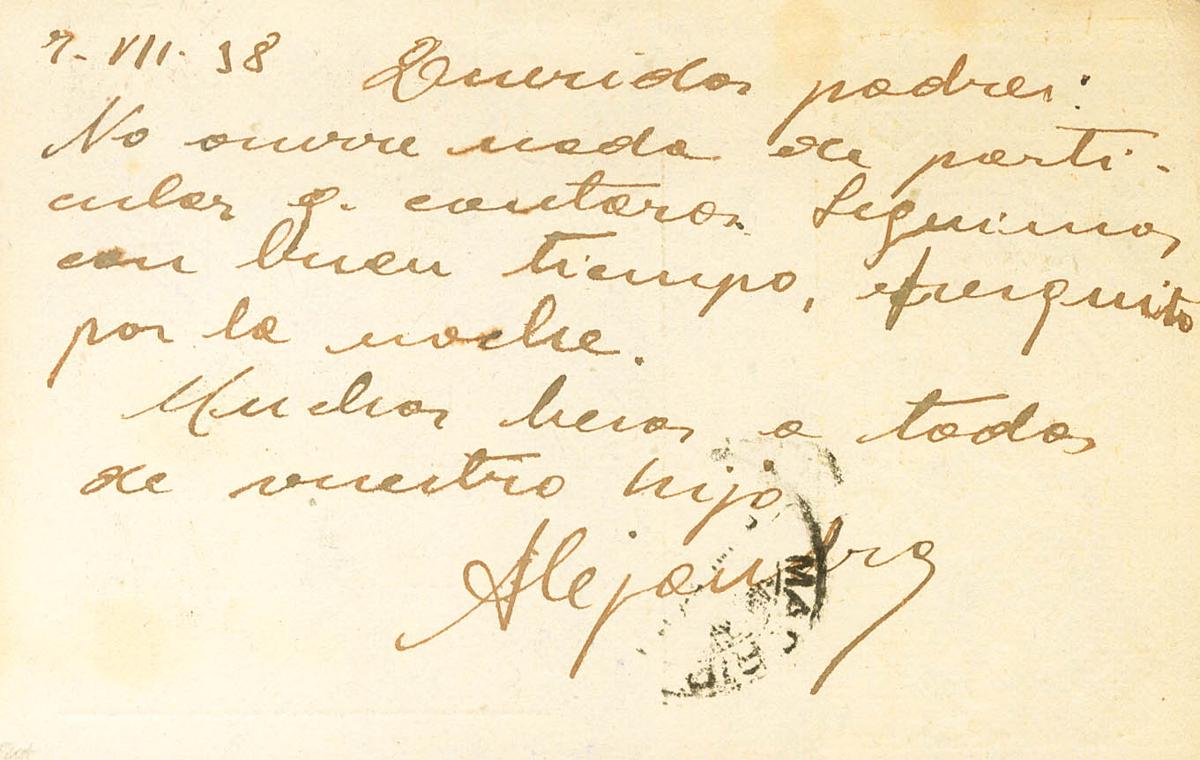 7. VII. 38 Queridos padres:
No ocurre nada de parti-
cular q. contaros. Seguimos
con buen tiempo, fresquito
por la noche.
Muchos besos a todos
de vuestro hijo
Alejandro
MADRID